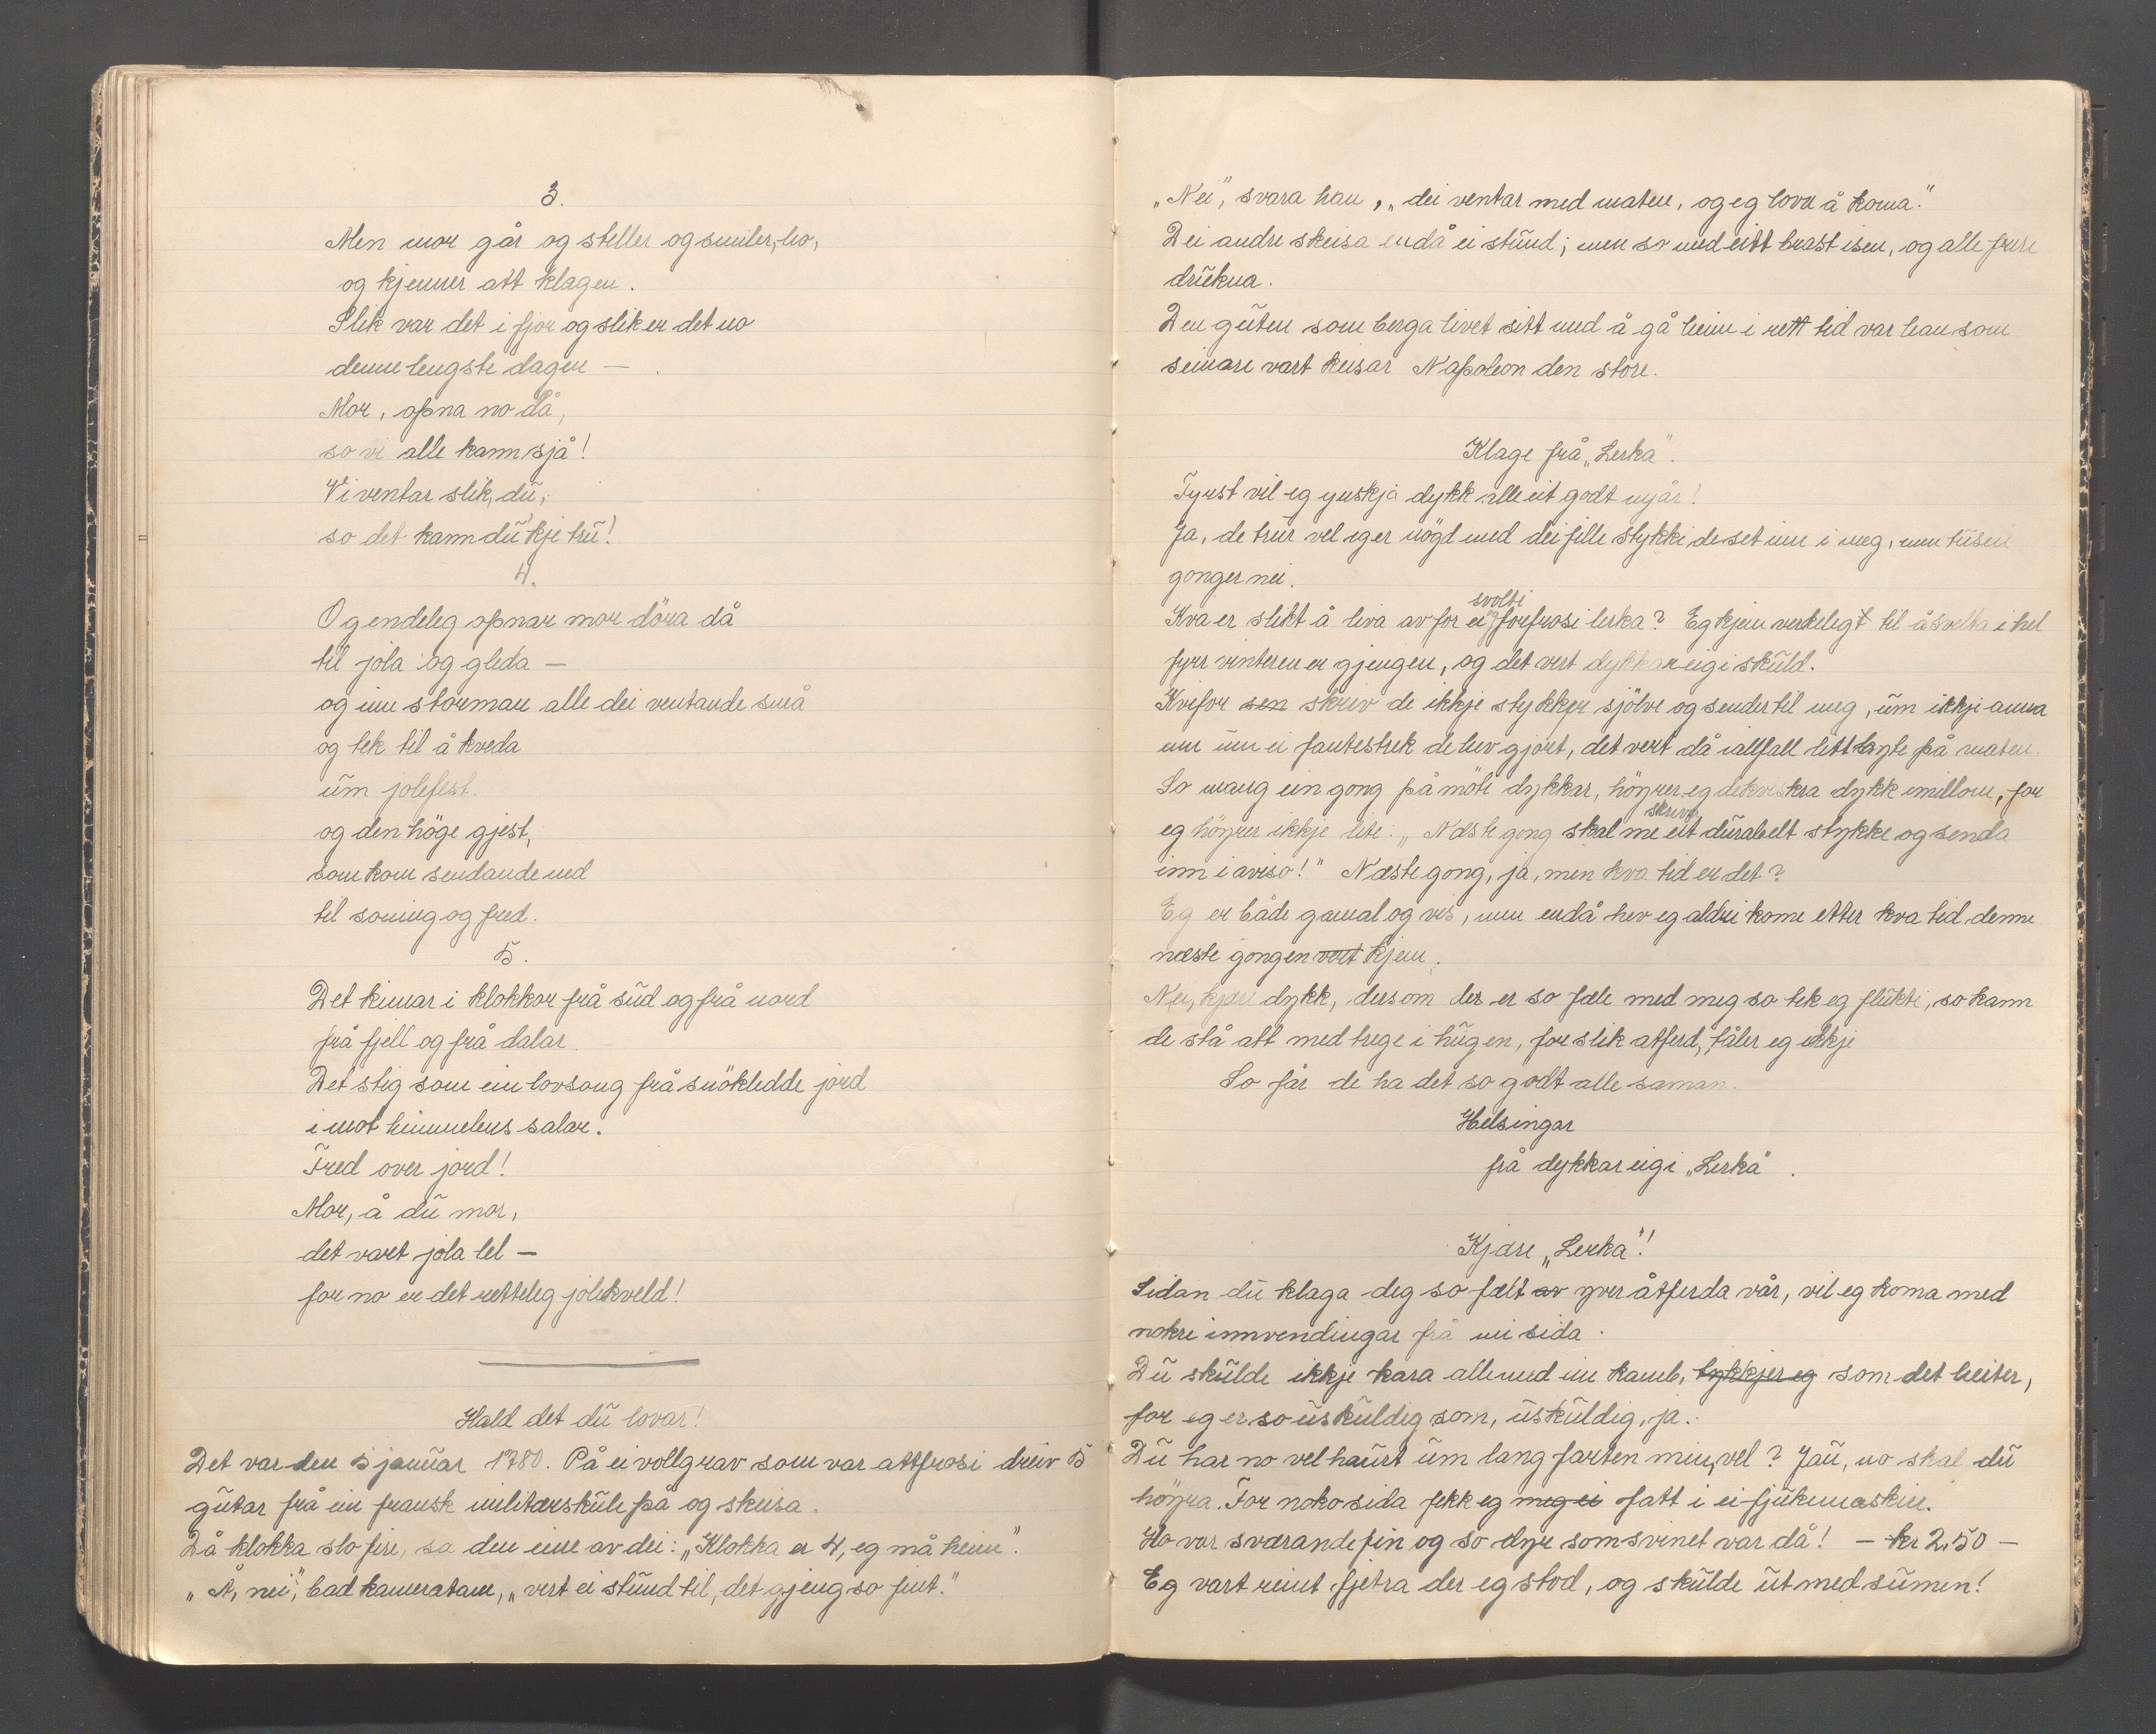 3.
Men mor går og steller og smiler, ho,
og kjenner att klagen.
Slik var det i fjor og slik er det no
denne lengste dagen —
Mor, opna no då,
so vi alle kann sjå!
Vi ventar slik, du,
so det kann du'kje tru!
4.
Og endeleg opnar mor döra då
til jola og gleda —
og inn stormar alle dei ventande små
og tek til å kveda
um jolefest.
og den höge gjest,
som kom sendande ned
til soning og fred.
5.
Det kimar i klokkor frå sud og frå nord
frå fjell og frå dalar.
Det stig som ein lovsong frå snökledde jord
imot himmelens salar.
Fred over jord!
Mor, å du mor,
det vart jola lel —
for no er det retteleg jolekveld!
Hald det du lovar!
Det var den 5 januar 1780. På ei vollgrav som var attfrosi dreiv 5
gutar frå ein fransk militærskule på og skeisa.
Då klokka slo fire, sa den eine av dei: „Klokka er 4, eg må heim".
„Å, nei", bad kameratane, „vert ei stund til, det gjeng so fint."
„Nei", svara han, „dei ventar med maten, og eg lova å koma."
Dei andre skeisa endå ei stund; men so med eitt brast isen, og alle fire
drukna.
Den guten som berga livet sitt med å gå heim i rett tid var han som
seinare vart keisar Napoleon den store.
Klage frå „Lerka".
Fyrst vil eg ynskja dykk alle eit godt nyår!
Ja, de trur vel eg er nögd med dei fille stykki de set inn i meg, men tusen
gonger nei.
svolti
Kva er slikt å liva av for ei og forfrosi lerka? Eg kjem verkelegt til å svelta i hel
fyrr vinteren er gjengen, og det vert dykkar eigi skuld.
Kvifor sen skriv de ikkje stykker sjölve og sender til meg, um ikkje anna
enn um ei fantestrek de hev gjort, det vert då iallfall litt byte på maten.
So mang ein gong på möti dykkar, höyrer eg de kviskra dykk imillom, for
skriva
eg höyrer ikkje lite: „Næste gong skal me eit durabelt stykke og senda
inn i avisa!" Næste gong, ja, men kva tid er det?
Eg er både gamal og vis, men endå hev eg aldri kome etter kva tid denne
næste gongen vert kjem.
Nei, kjære dykk, dersom der er so fæle med meg so tek eg flukti, so kann
de stå att med trege i hugen, for slik åtferd, tåler eg ikkje
So får de ha det so godt alle saman.
Helsingar
frå dykkar eigi „Lerka".
Kjære „Lerka"!
Sidan du klaga deg so fælt av yver åtferda vår, vil eg koma med
nokre innvendingar frå mi sida.
Du skulde ikkje kara alle med ein kamb, tykkjer eg som det heiter,
for eg er so uskuldig som, uskuldig, ja.
Du har no vel haurt um langfarten min, vel? Jau, no skal du
höyra. For noko sida fekk eg meg ei fatt i ei fjukmaskin.
Ho var sværande fin og so dyr som svinet var då! — kr 2.50 —
Eg vart reint fjetra der eg stod, og skulde ut med sumen!